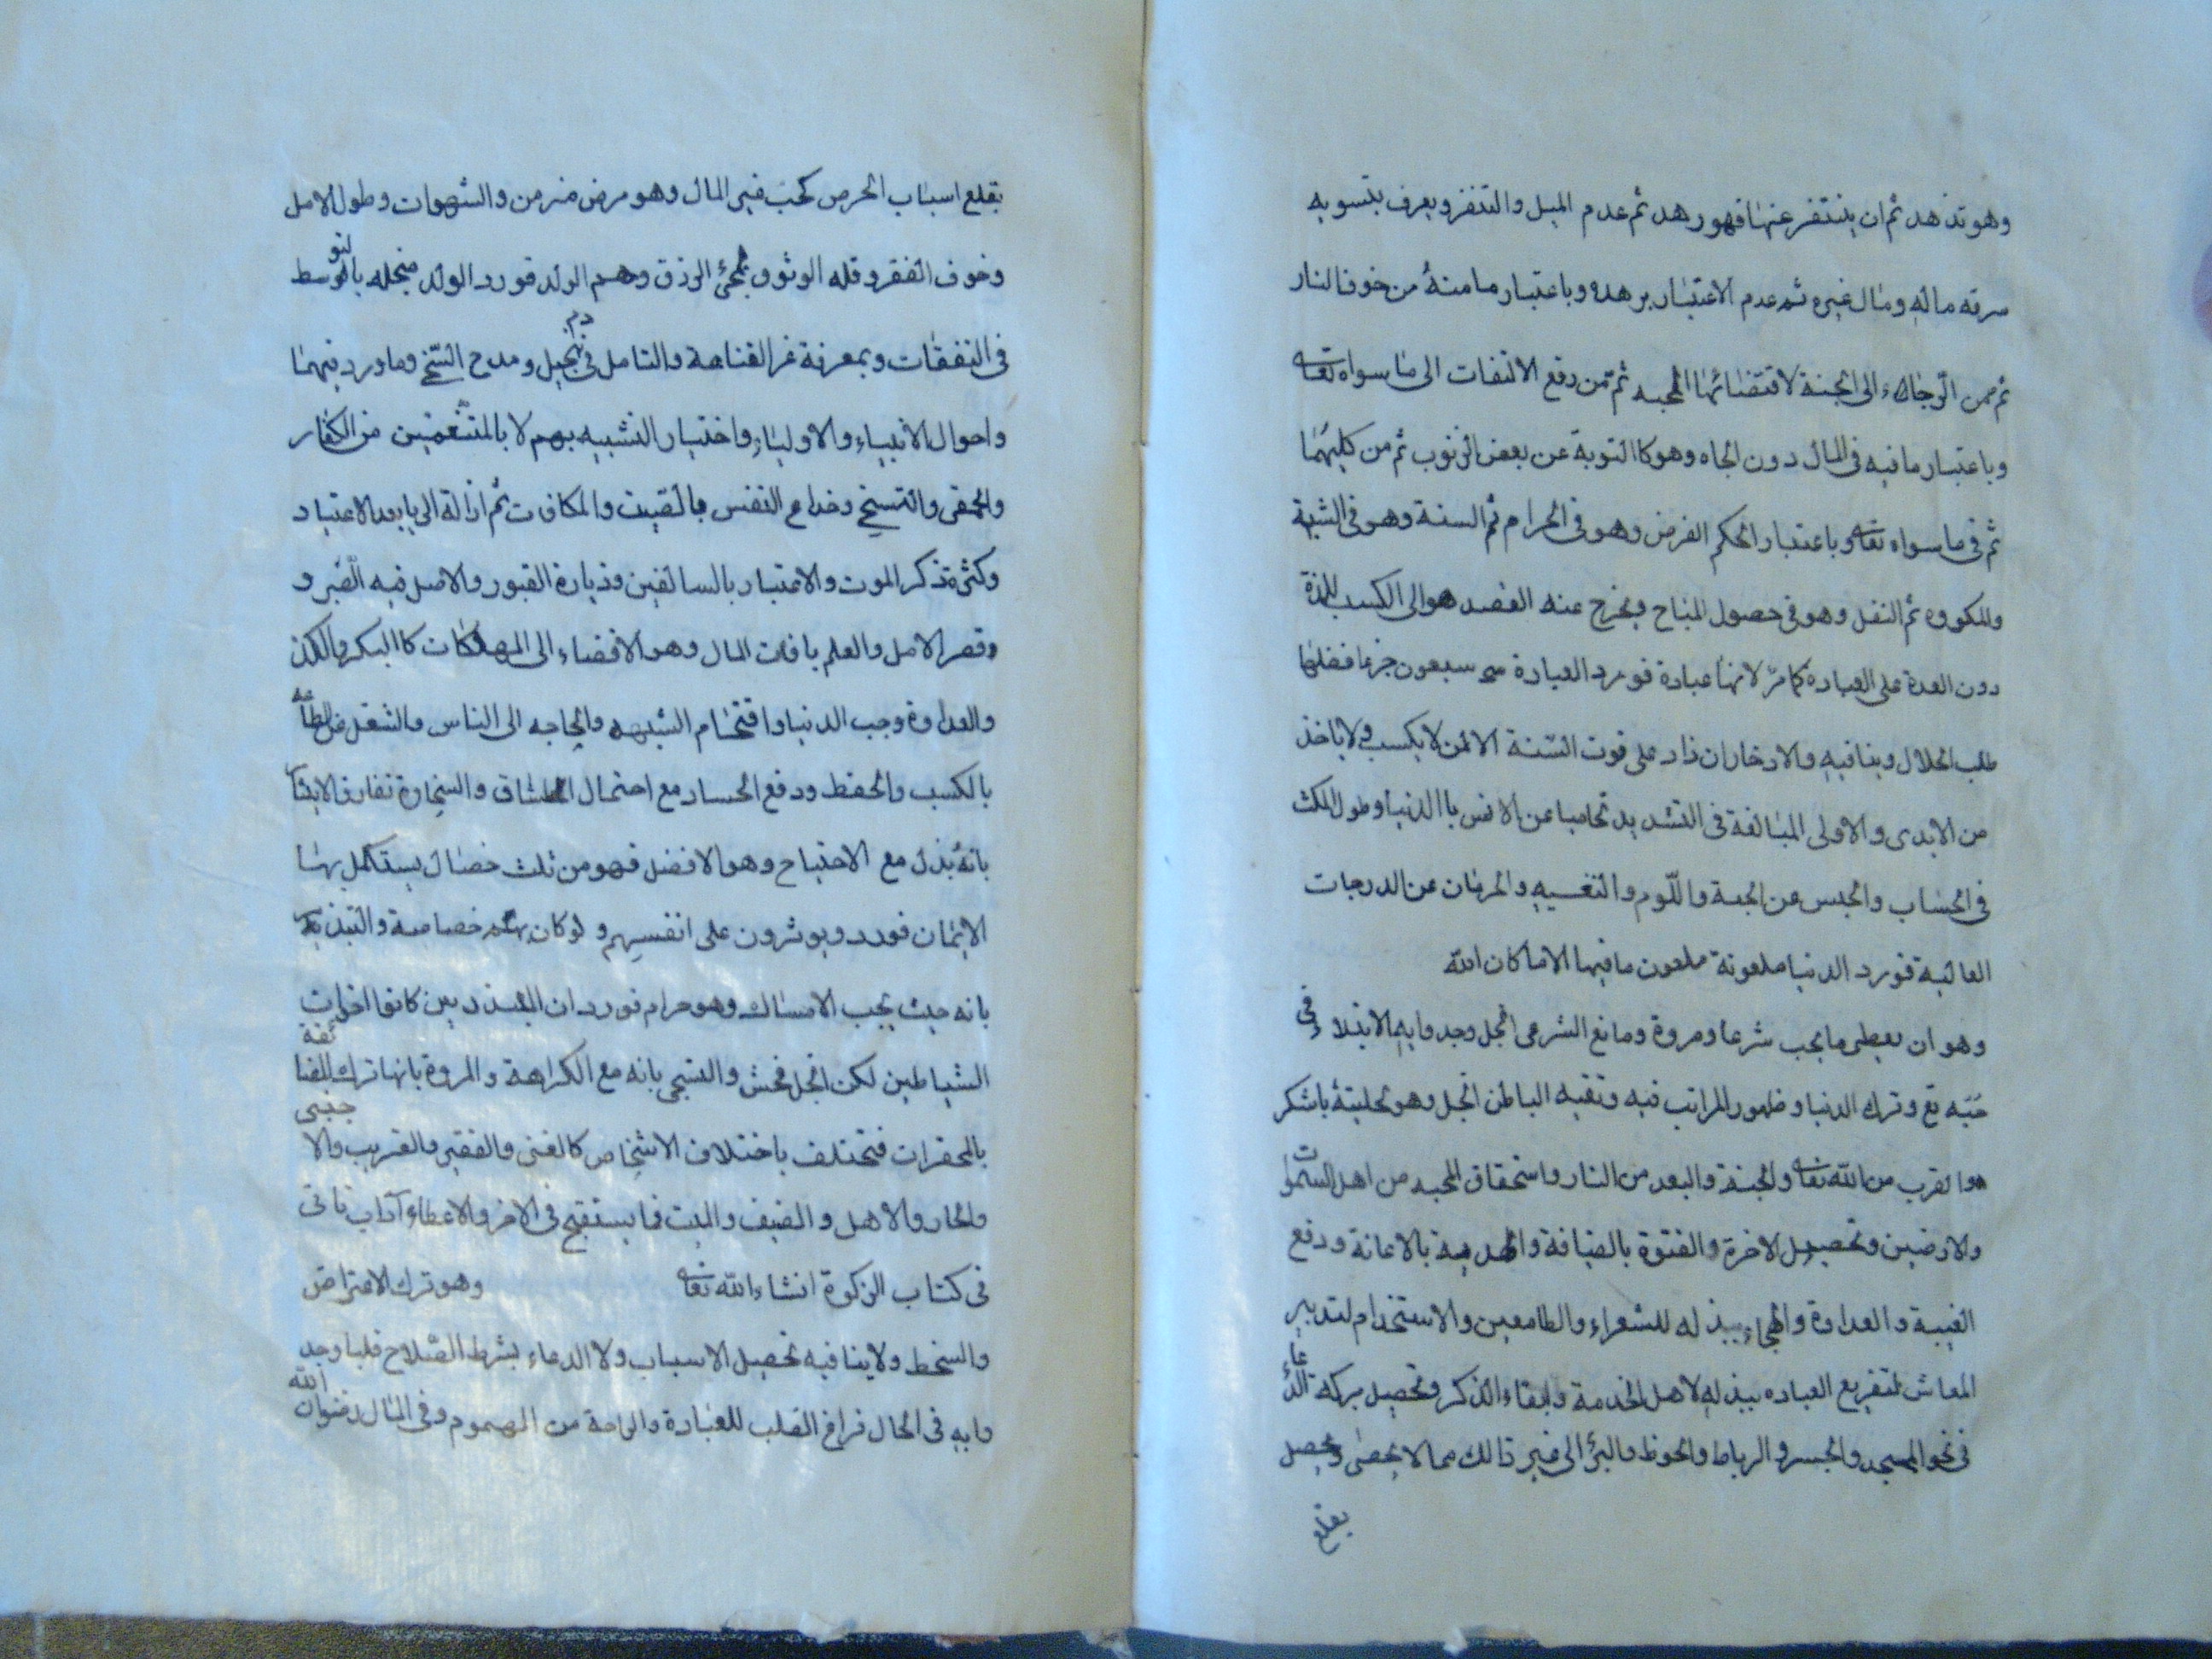 وهو تذهد ثم ان يتنفر عنها فهو زهد ثم عدم الميل والتنفر ويعرف بتسويه
سرقه ماله ومال غيره ثم عدم الاعتبار بزهده وباعتبار ما منه من خوف النار
ثم من الرجاء الى الجنة لاقتضائها المحبه ثم من رفع الالتفات الى ما سواه تعالى
وباعتبار ما فيه فى المال دون الجاه وهو كالتوبة عن بعض الذنوب ثم من كليهما
ثم فى ما سواه تعالى وباعتبار الحكم الفرض وهو فى الحرام ثم السنة وهو فى الشبهة
والمكروه ثم النفل وهو فى حصول المباح ويخرج عنه القصد هو الى الكسب للذة
دون العدة على العباده كما مرّ لانها عبادة فورد العبادة سبعون جزءا فضلها
طلب الحلال وينافيه والادخار ان زاد على قوت السّنة الا لمن لا يكسب ولا ياخذ
من الايدى والاولى المبالغة فى التشديد تحاميا عن الانس باالدنيا وطول المكث
فى الحساب والحبس عن الجنة واللّوم والتعسير والحرمان عن الدرجات
العالية فورد الدنيا ملعونة ملعون ما فيها الا ما كان الله
وهو ان يعطى ما يجب شرعا ومروة ومانع الشرعى ابخل وجدوا به الابتلاء فى
حبّه تع وترك الدنيا وظهور المراتب فيه وتنقيه الباطن البخل وهو تحليتهُ باشكر
هو القرب من الله تعالى والجنة والبعد من النار واستحقاق المحبه من اهل السموات
والارضين وتحصيل الاخرة والفتوة بالضيافة والهدية بالاعانة ودفع
الغيبة والعداوة والهجاء ببذله للشعراء والطامعين والاستخدام لتدبير
المعاش لتفريع العباده ببذله لاهل الخدمة وابقاء الذكر وتحصيل بركه الدّعاء
فى نحو المسجد والجسر والرباط والحوظ والبئر الى غير ذالك مما لا يحصى ويحصل
بقلع
بقلع اسباب الحرص كحب عين المال وهو مرض مزمن والشهوات وطول الامل
وخوف الفقر وقله الوثوق بمجئ الرزق وهم الولد فورد الولد مبخله بالتوسط
فى النفقات وبمعرفة عز القناعة والتامل فى ذم البخيل ومدح السّخى وما ورد فيهما
واحوال الانبياء والاولياء واختيار التشبيه بهم لا بالمتنعمين من الكفار
والحمقى والتسخى وخداع النفس بالصيت والمكافات ثم ازالة الريا بعد الاعتياد
وكثرة ذكر الموت والاعتبار بالسالفين وزيارة القبور والاصل فيه الصّبر و
وقصر الامل والعلم بافات المال وهو الافضاء الى المهلكات كاالبكر والكذب
والعداوة وحب الدنيا واقتحام الشبهه والحاجه الى الناس والشغل عن الطاعه
بالكسب والحفظ ودفع الحساد مع احتمال المشاق والسخاوة تفارق الايثار
بانه بذل مع الاحتياج وهو الافضل فهو من ثلث خصال يستكمل بها
الايمان فورد ويوثرون على انفسهم ولو كان بهم خصاصة والتبذير
بانه حيث يجب الامساك وهو حرام فورد ان المبذرين كانوا اخوان
الشياطين لكن البخل فحش والشح بانه مع الكراهة والمروة بانها ترك المضائقة
بالمحقرات فتختلف باختلاف الاشخاص كالغنى والفقير والقريب والاجنبى
والجار والاهل والضيف والميت فما يستقبح فى الاخر والاعطاء آداب تاتى
فى كتاب الزكوة انشاء الله تعالى وهو ترك الاعتراض
والسخط ولا ينافيه تحصيل الاسباب ولا الدعاء بشرط الصّلاح قلبا وجد
وابه فى الحال فراغ القلب للعبادة والراحة من الهموم وفى المال رضوان الله